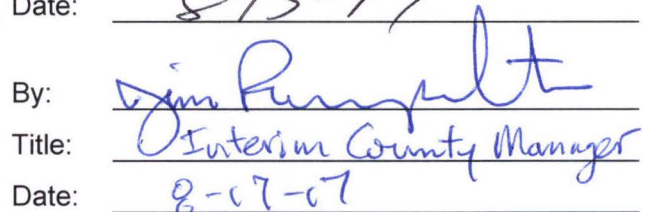 Date:
By: Jim
Title: Interim County Manager
Date: 8-17-17